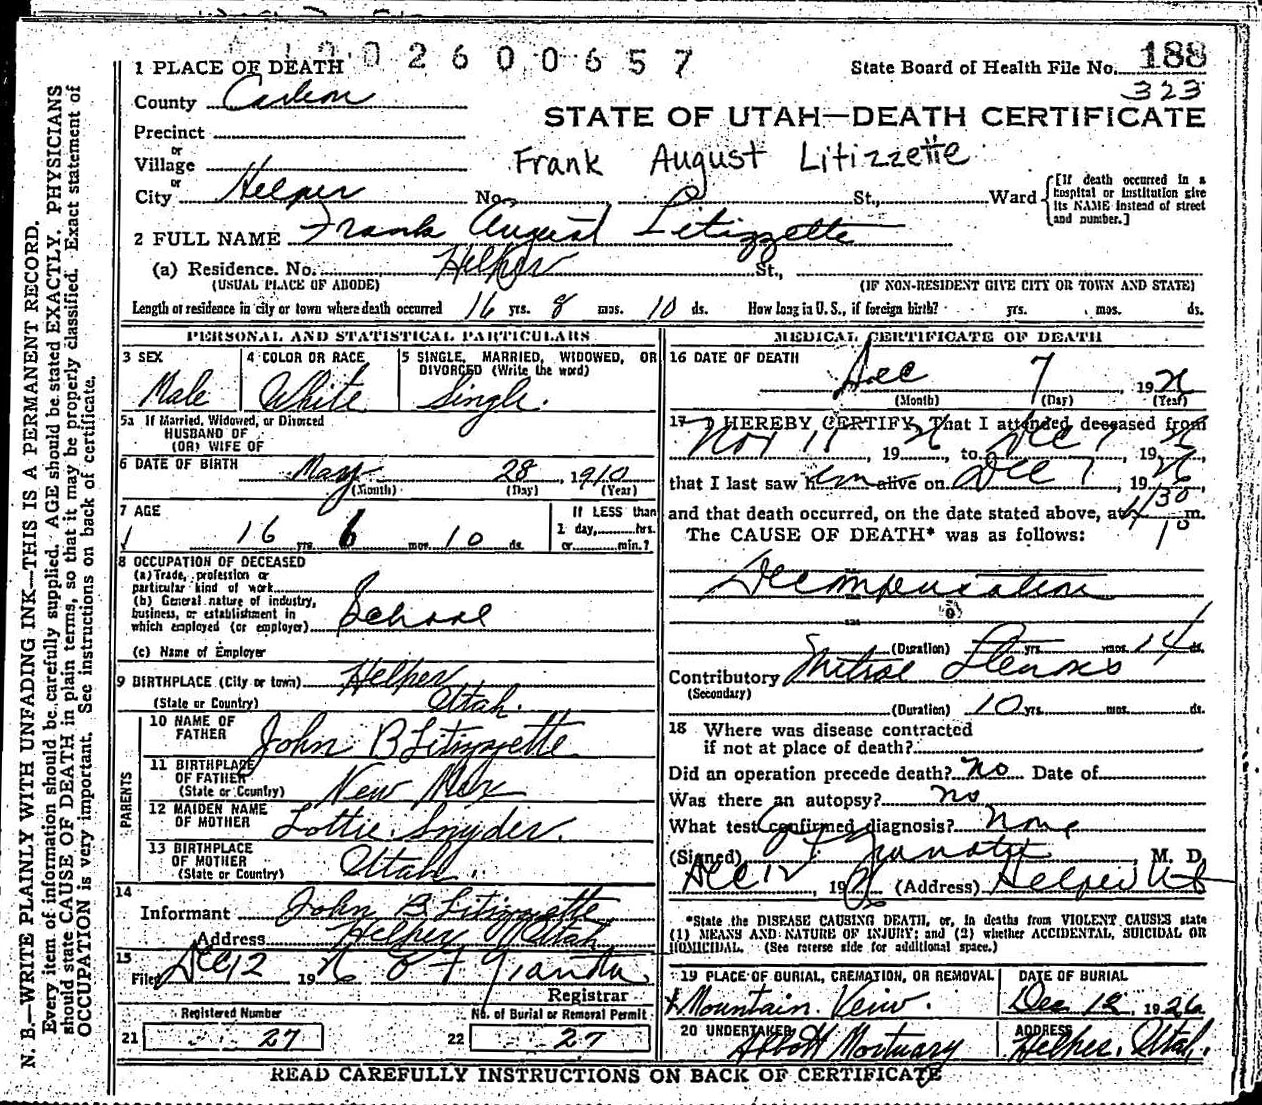 002600657
1 PLACE OF DEATH
State Board of Health File No. 188
323
County Carbon
STATE OF UTAH—DEATH CERTIFICATE
Precinct
or
Village
Frank August Litizzette
or
City Helper No. St., Ward
[If death occurred in a hospital or institution give its NAME instead of street and number.]
2 FULL NAME Frank August Litizzette
(a) Residence. No. Helper St.,
(USUAL PLACE OF ABODE) (IF NON-RESIDENT GIVE CITY OR TOWN AND STATE)
Length of residence in city or town where death occurred 16 yrs. 8 mos. 10 ds. How long in U. S., if foreign birth? yrs. mos. ds.
PERSONAL AND STATISTICAL PARTICULARS
3 SEX
Male
4 COLOR OR RACE
White
5 SINGLE, MARRIED, WIDOWED, OR
DIVORCED (Write the word)
Single.
5a If Married, Widowed, or Divorced
HUSBAND OF
(OR) WIFE OF
6 DATE OF BIRTH May 28, 1910
(Month) (Day) (Year)
7 AGE
16 yrs. 6 mos. 10 ds.
If LESS than
1 day, hrs.
or min.?
8 OCCUPATION OF DECEASED
(a) Trade, profession or
particular kind of work
(b) General nature of industry,
business, or establishment in
which employed (or employer) School
(c) Name of Employer
9 BIRTHPLACE (City or town) Helper
(State or Country) Utah.
PARENTS
10 NAME OF
FATHER John B Litizzette
11 BIRTHPLACE
OF FATHER
(State or Country) New Mex
12 MAIDEN NAME
OF MOTHER Lottie Snyder.
13 BIRTHPLACE
OF MOTHER
(State or Country) Utah.
14
Informant John B Litizzette
Address Helper Utah
15
Filed Dec 12 1926
Registrar
Registered Number
21 27
No. of Burial or Removal Permit
22 27
MEDICAL CERTIFICATE OF DEATH
16 DATE OF DEATH
Dec 7 1926
(Month) (Day) (Year)
17 I HEREBY CERTIFY, That I attended deceased from
Nov 11, 1926, to Dec 7, 1926,
that I last saw him alive on Dec 7, 1926,
and that death occurred, on the date stated above, at m.
The CAUSE OF DEATH* was as follows:
Decompensation
(Duration) yrs. mos. 14 ds.
Contributory Mitral Stenosis
(Secondary)
(Duration) 10 yrs. mos. ds.
18 Where was disease contracted
if not at place of death?
Did an operation precede death? no Date of
Was there an autopsy? no
What test confirmed diagnosis? none
(Signed) , M. D.
Dec 12, 1926 (Address) Helper Ut
*State the DISEASE CAUSING DEATH, or, in deaths from VIOLENT CAUSES state
(1) MEANS AND NATURE OF INJURY; and (2) whether ACCIDENTAL, SUICIDAL OR
HOMICIDAL. (See reverse side for additional space.)
19 PLACE OF BURIAL, CREMATION, OR REMOVAL
Mountain Veiw.
DATE OF BURIAL
Dec 12, 1926
20 UNDERTAKER
Abbott Mortuary
ADDRESS
Helper, Utah.
READ CAREFULLY INSTRUCTIONS ON BACK OF CERTIFICATE
N. B.—WRITE PLAINLY WITH UNFADING INK—THIS IS A PERMANENT RECORD.
Every item of information should be carefully supplied. AGE should be stated EXACTLY. PHYSICIANS
should state CAUSE OF DEATH in plain terms, so that it may be properly classified. Exact statement of
OCCUPATION is very important. See instructions on back of certificate.